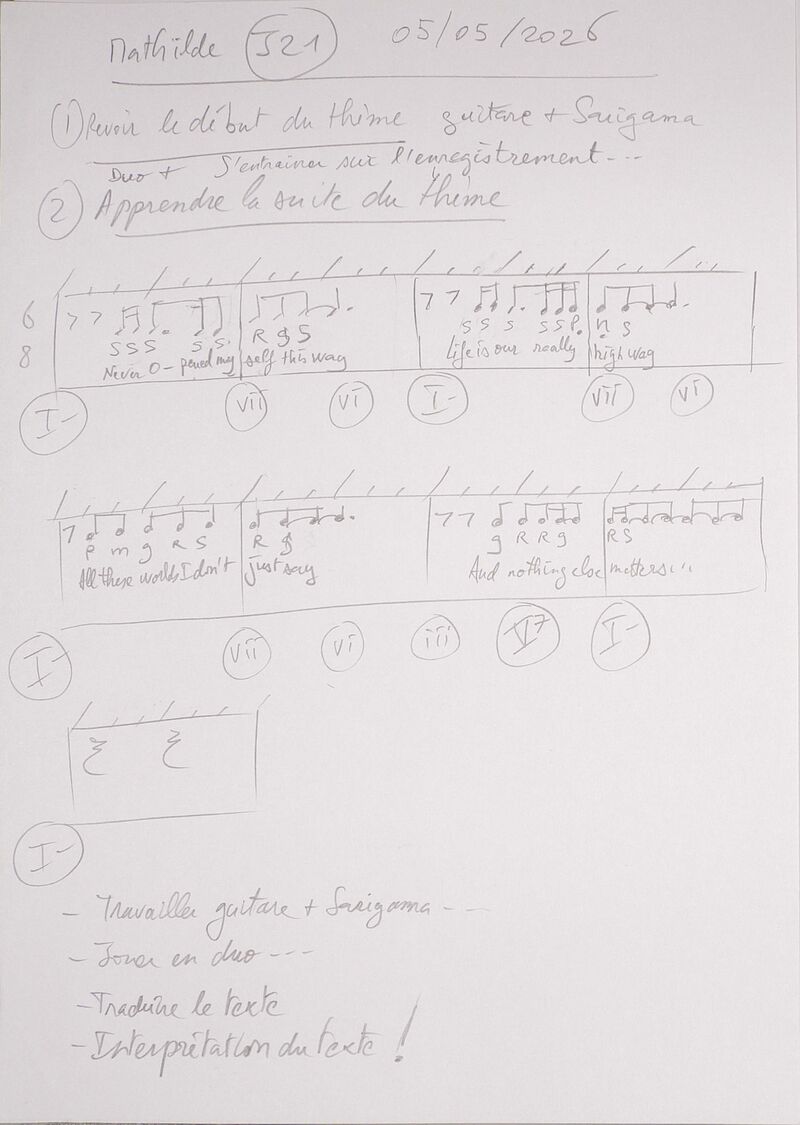 Mathilde J21 05/05/2026
① Revoir le début du thème guitare + Sarigama
Duo + S'entrainer sur l'enregistrement---
② Apprendre la suite du thème
6
8
S S S S S R g S S S S S S P. n S
Never O-pened my self this way Life is our really high way
I- vii vi I- vii vi
P m g R S R g g R R g R S
All these worlds I don't just say And nothing else matters...
I- vii vi iii V7 I-
I-
- Travailler guitare + Sarigama ---
- Jouer en duo ---
- Traduire le texte
- Interprétation du texte !